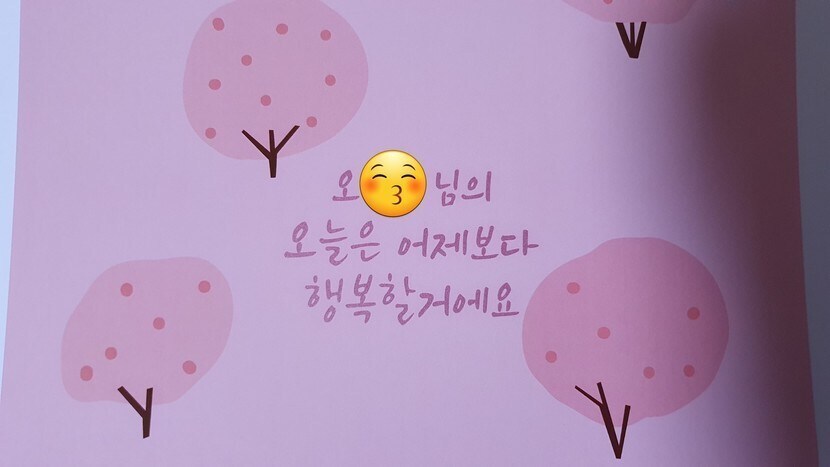 오 님의
오늘은 어제보다
행복할거에요